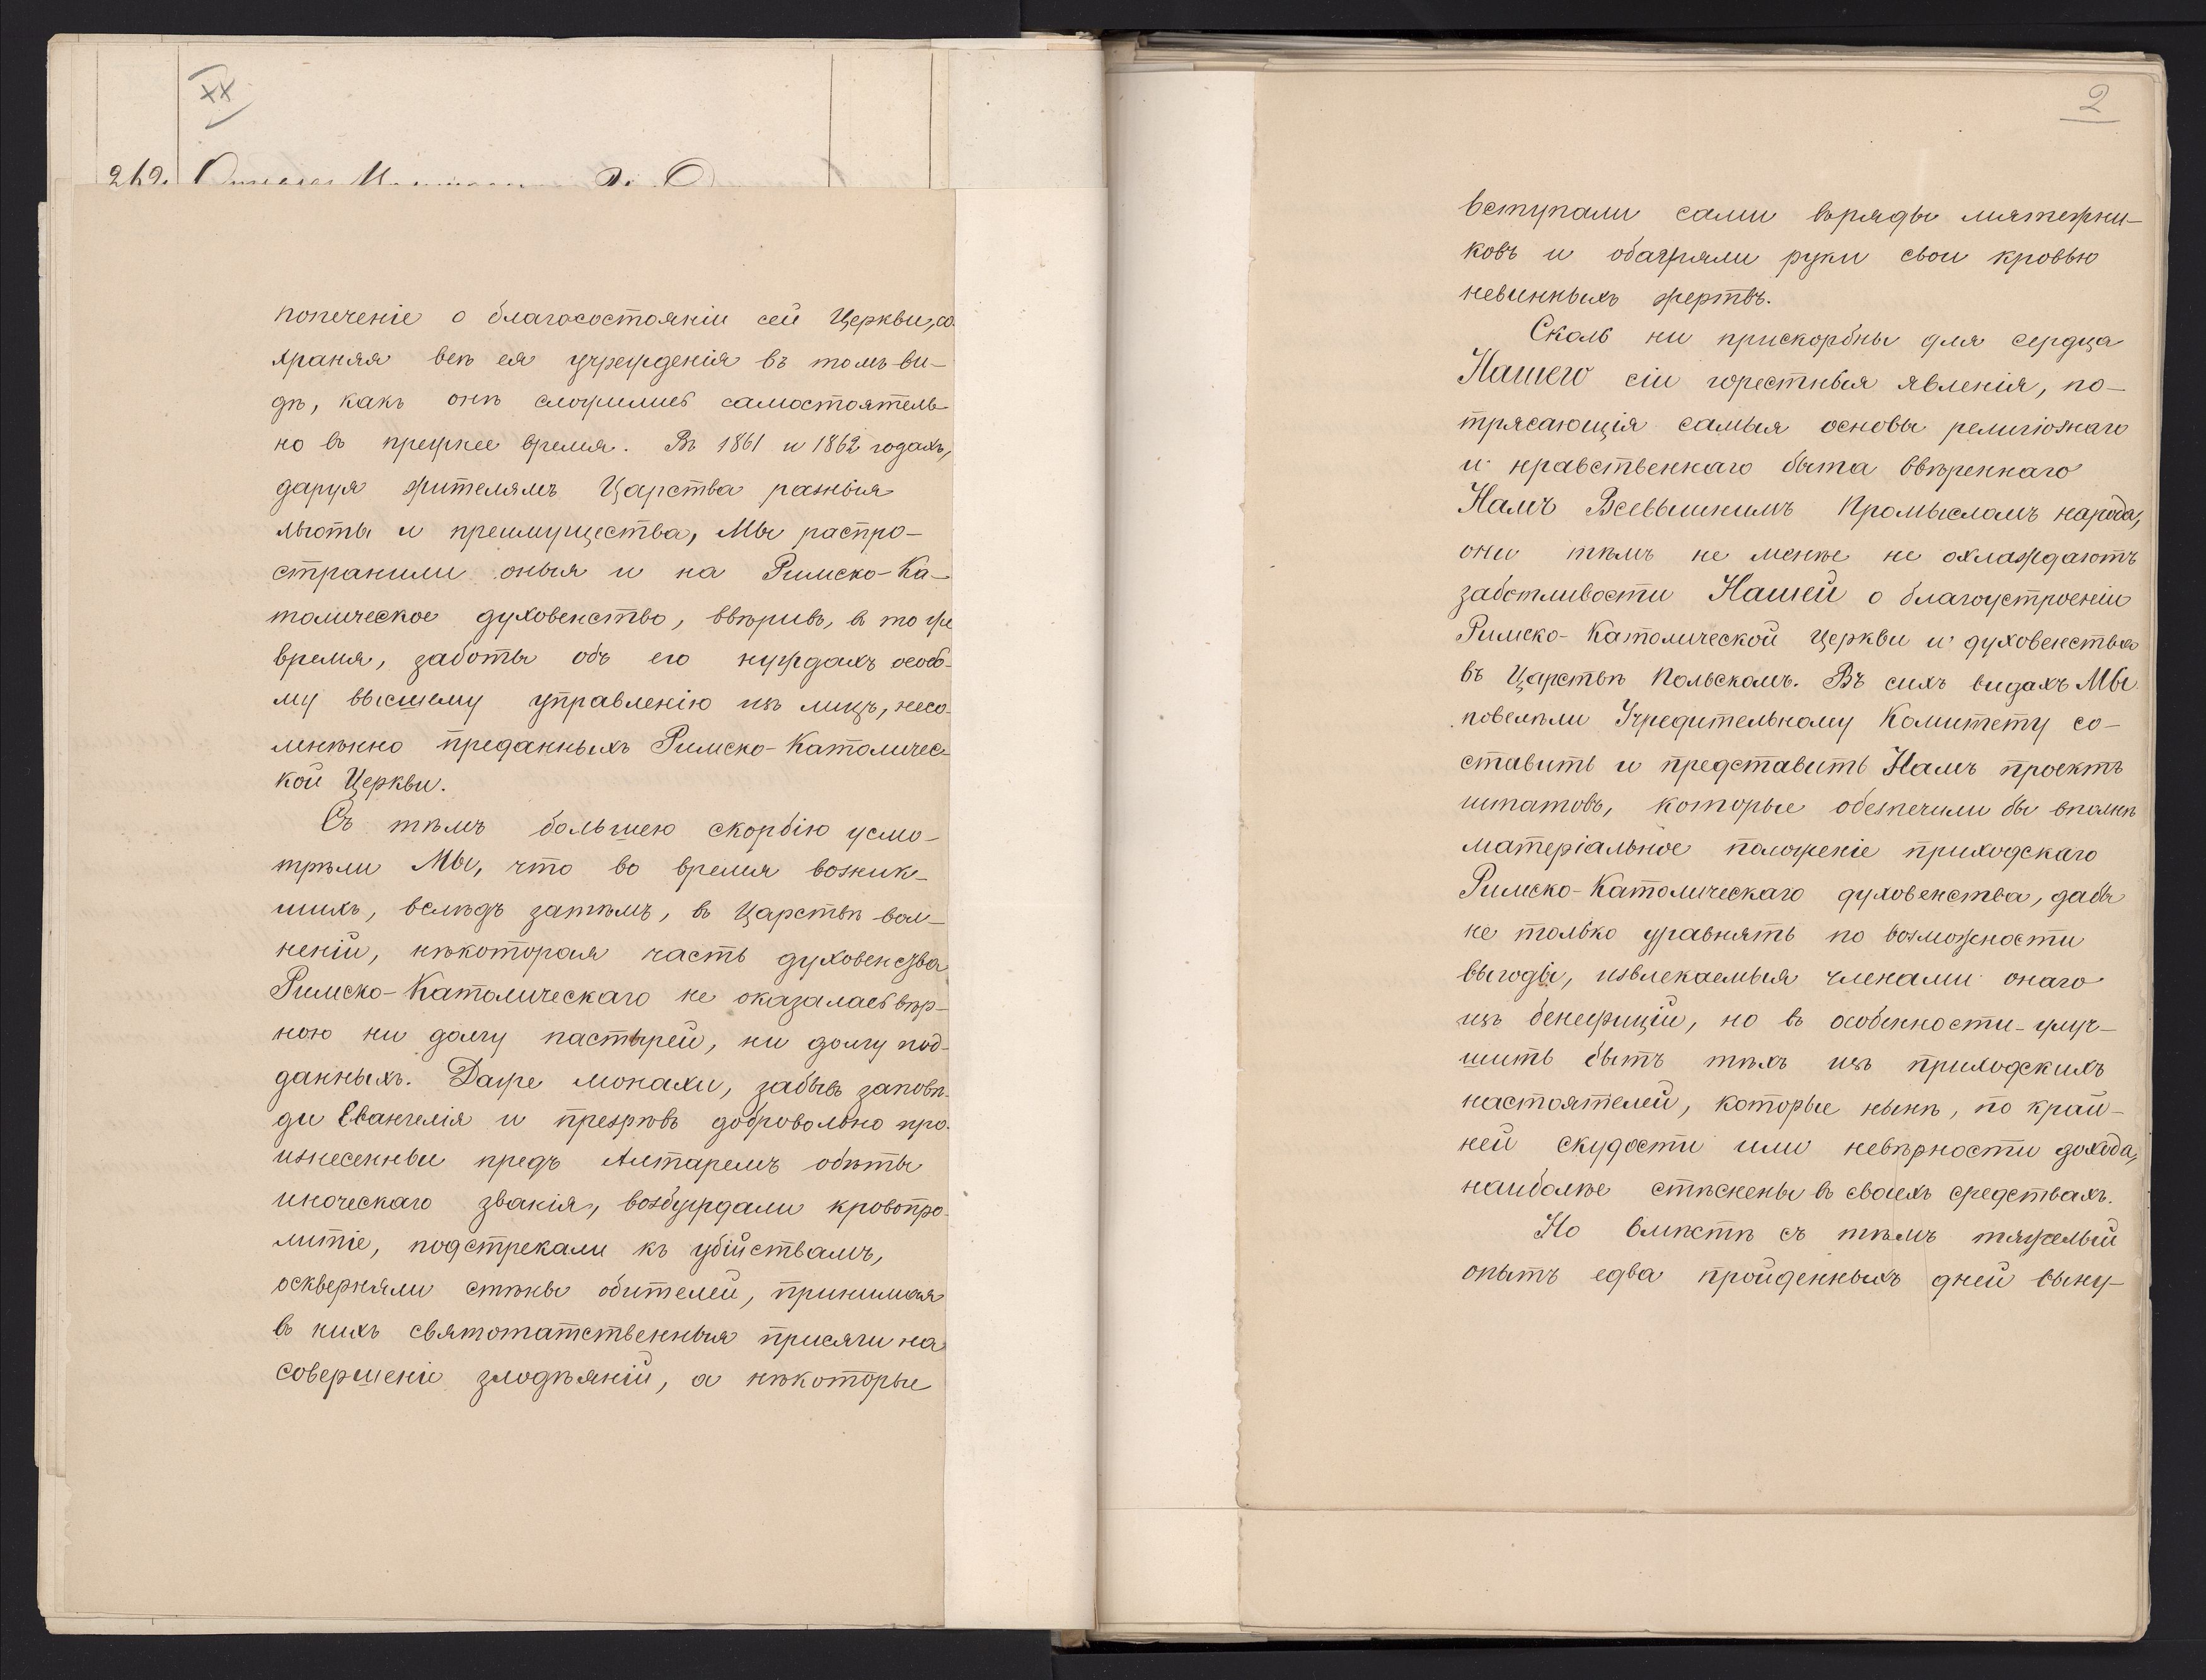 XX
262.
попеченіе о благосостояніи сей Церкви, со-
храняя всѣ ея учрежденія въ томъ ви-
дѣ, какъ онѣ сложились самостоятель-
но въ прежнее время. Въ 1861 и 1862 годахъ,
даруя жителямъ Царства разныя
льготы и преимущества, Мы распро-
странили оныя и на Римско-Ка-
толическое духовенство, ввѣривъ, въ то же
время, заботы объ его нуждахъ особо-
му высшему управленію изъ лицъ, несо-
мнѣнно преданныхъ Римско-Католичес-
кой Церкви.
Съ тѣмъ большею скорбію усмо-
трѣли Мы, что во время возник-
шихъ, вслѣдъ затѣмъ, въ Царствѣ вол-
неній, нѣкоторая часть духовенства
Римско-Католическаго не оказалась вѣр-
ною ни долгу пастырей, ни долгу под-
данныхъ. Даже монахи, забывъ заповѣ-
ди Евангелія и презрѣвъ добровольно про-
изнесенные предъ Алтаремъ обѣты
иноческаго званія, возбуждали кровопро-
литіе, подстрекали къ убійствамъ,
оскверняли стѣны обителей, принимая
въ нихъ святотатственныя присяги на
совершеніе злодѣяній, а нѣкоторые
2
вступали сами въ ряды мятежни-
ковъ и обагряли руки свои кровью
невинныхъ жертвъ.
Сколь ни прискорбны для сердца
Нашего сіи горестныя явленія, по-
трясающія самыя основы религіознаго
и нравственнаго быта ввѣреннаго
Намъ Всевышнимъ Промысломъ народа,
они тѣмъ не менѣе не охлаждаютъ
заботливости Нашей о благоустроеніи
Римско-Католической Церкви и духовенства
въ Царствѣ Польскомъ. Въ сихъ видахъ Мы
повелѣли Учредительному Комитету со-
ставить и представить Намъ проектъ
штатовъ, которые обезпечили бы вполнѣ
матеріальное положеніе приходскаго
Римско-Католическаго духовенства, дабы
не только уравнять по возможности
выгоды, извлекаемыя членами онаго
изъ бенефицій, но въ особенности улуч-
шить бытъ тѣхъ изъ приходскихъ
настоятелей, которые нынѣ, по край-
ней скудости или невѣрности дохода,
наиболѣе стѣснены въ своихъ средствахъ.
Но вмѣстѣ съ тѣмъ тяжелый
опытъ едва пройденныхъ дней выну-